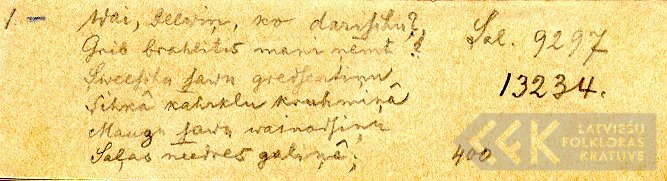 1 - Wai, Deewiņ, ko darischu?
Grib brahlitis mani ņemt!
Sweeschu sawu gredsentiņu
Sihkâ kahrklu kruhmiņâ
Mauzu sawu wainadsiņu
Saļas needres galiņâ.
Sal. 9297
13234.
400
LATVIEŠU
FOLKLORAS
KRĀTUVE